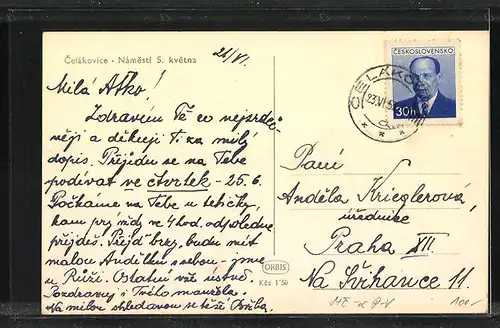 Čelákovice - Náměstí 5. května
21/VI.
Milá Aťko!
Zdravím Tě co nejsrdeč-
něji a děkuji Ti za milý
dopis. Přijedu se na Tebe
podívat ve čtvrtek - 25.6.
Počkáme na Tebe u tetičky,
kam prý vždy ve 4 hod. odpoledne
přijdeš. Přijď brzy, budu mít
malou Andělku s sebou - jsme
u Růži. Ostatní vše ústně.
Pozdravuj Tvého manžela.
Na milou shledanou se těší
ČESKOSLOVENSKO
30h
23.VI.5
Paní
Anděla Krieglerová,
úřednice
Praha XII.
Na Švihance 11.
ORBIS
Kčs 1'50
100,-